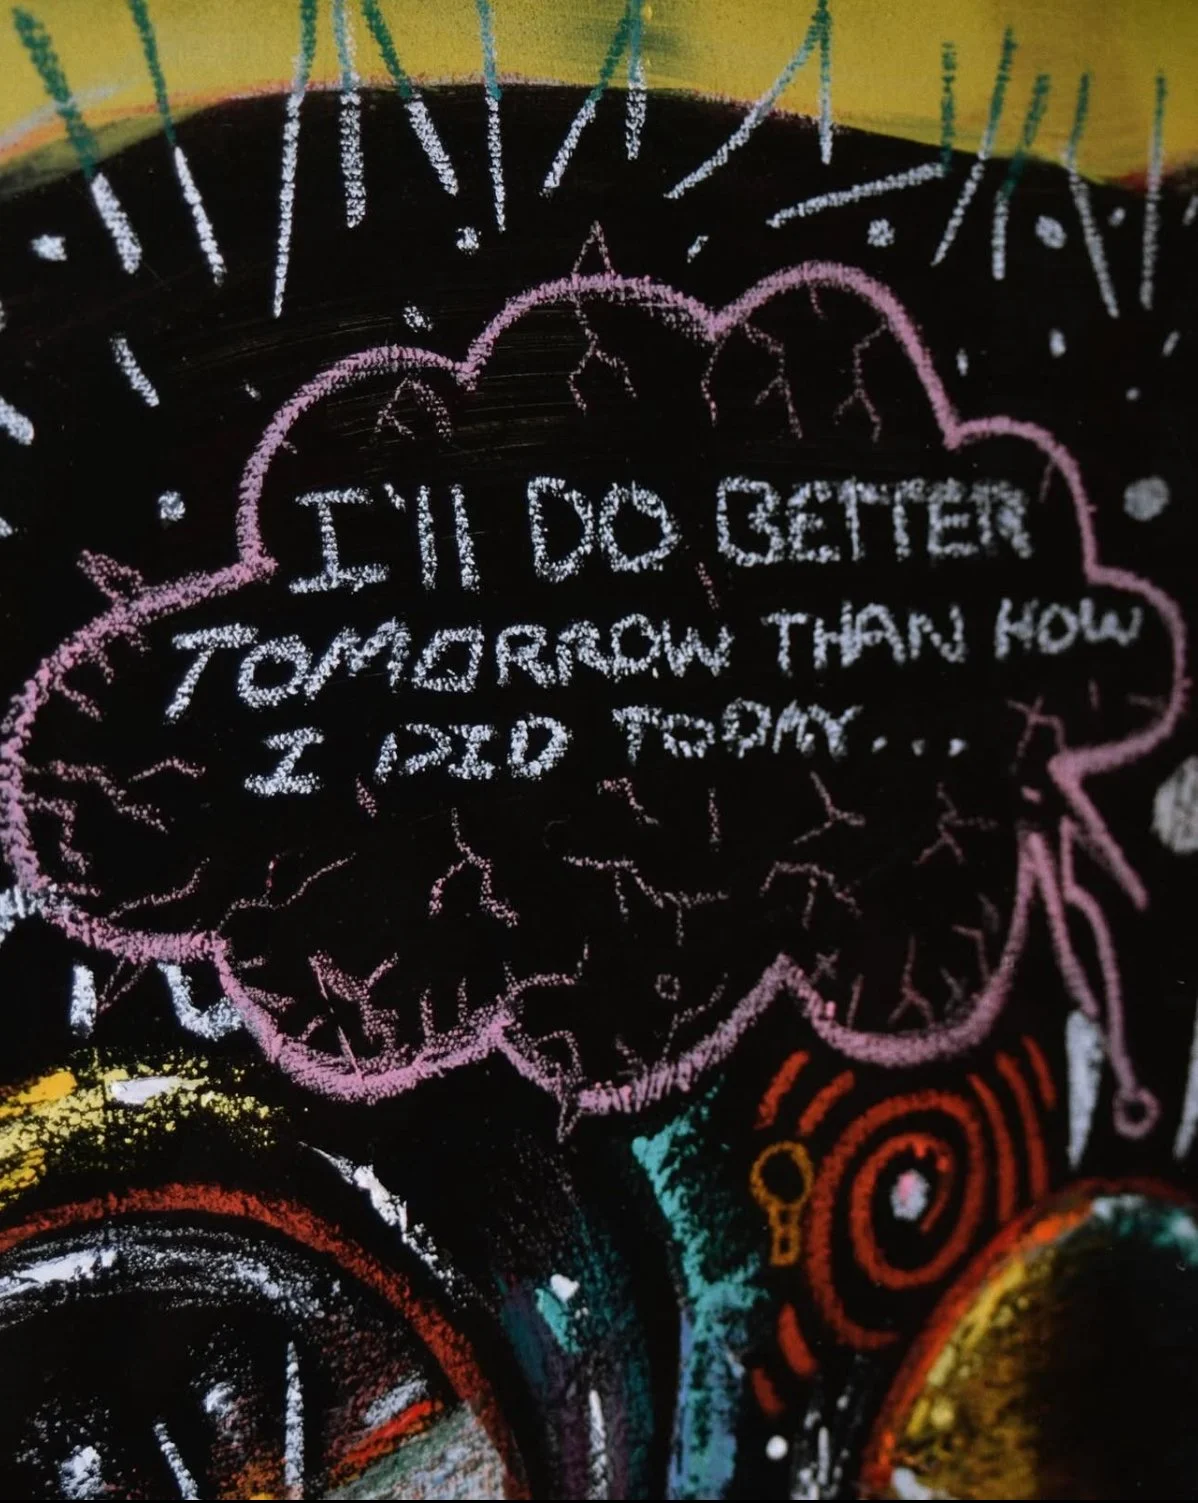 I'll DO BETTER
TOMORROW THAN HOW
I DID TODAY...